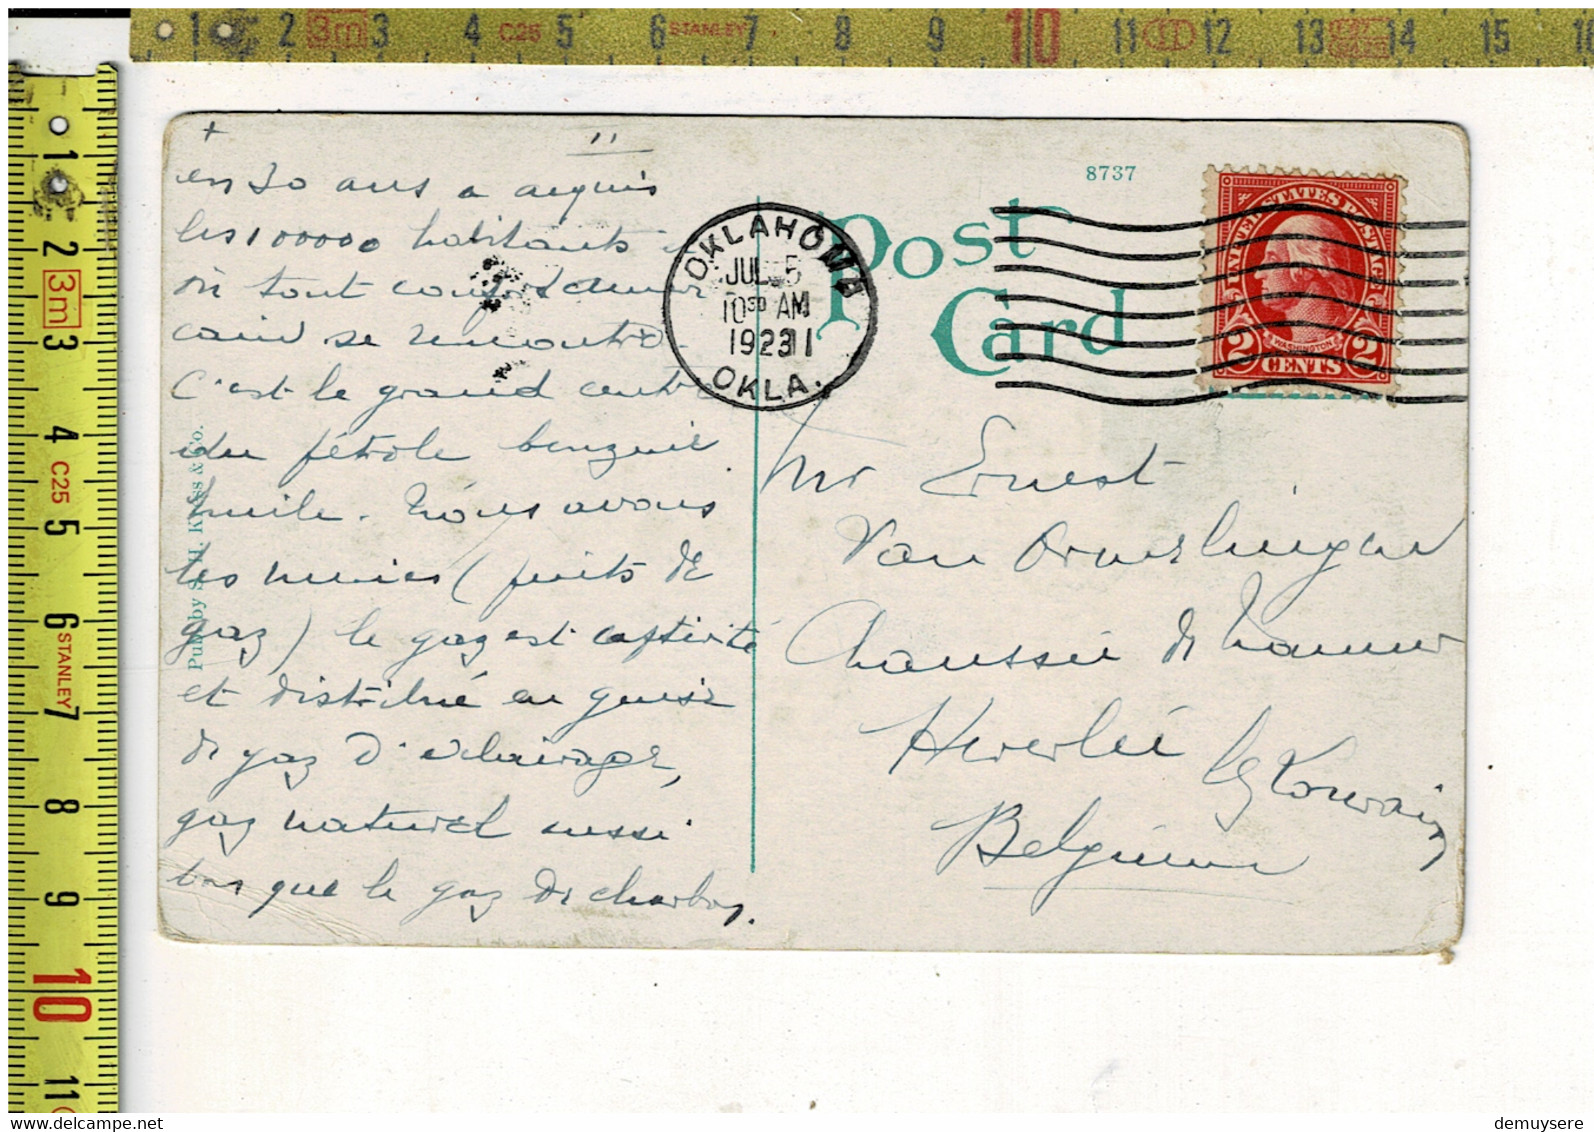 11
en 30 ans a acquis
les 100000 habitants
où tout confort améri
cain se rencontre.
C'est le grand centre
du pétrole benzine
huile. Nous avons
les mines (puits de
gaz) le gaz est captivité
et distribué en guise
de gaz d'éclairage,
gaz naturel aussi
bon que le gaz de charbon.
Pub. by S. H. Kress & Co.
OKLAHOMA
JUL 5
10 30 AM
1923
OKLA.
8737
Post
Card
UNITED STATES POSTAGE
WASHINGTON
2 CENTS 2
Mr Ernest
Van
Chaussée de Namur
Heverlé lez Louvain
Belgium
1 2 3m 3 4 C25 5 6 STANLEY 7 8 9 10 11 12 13 14 15
1 2 3m 3 4 C25 5 6 STANLEY 7 8 9 10 11
demuysere